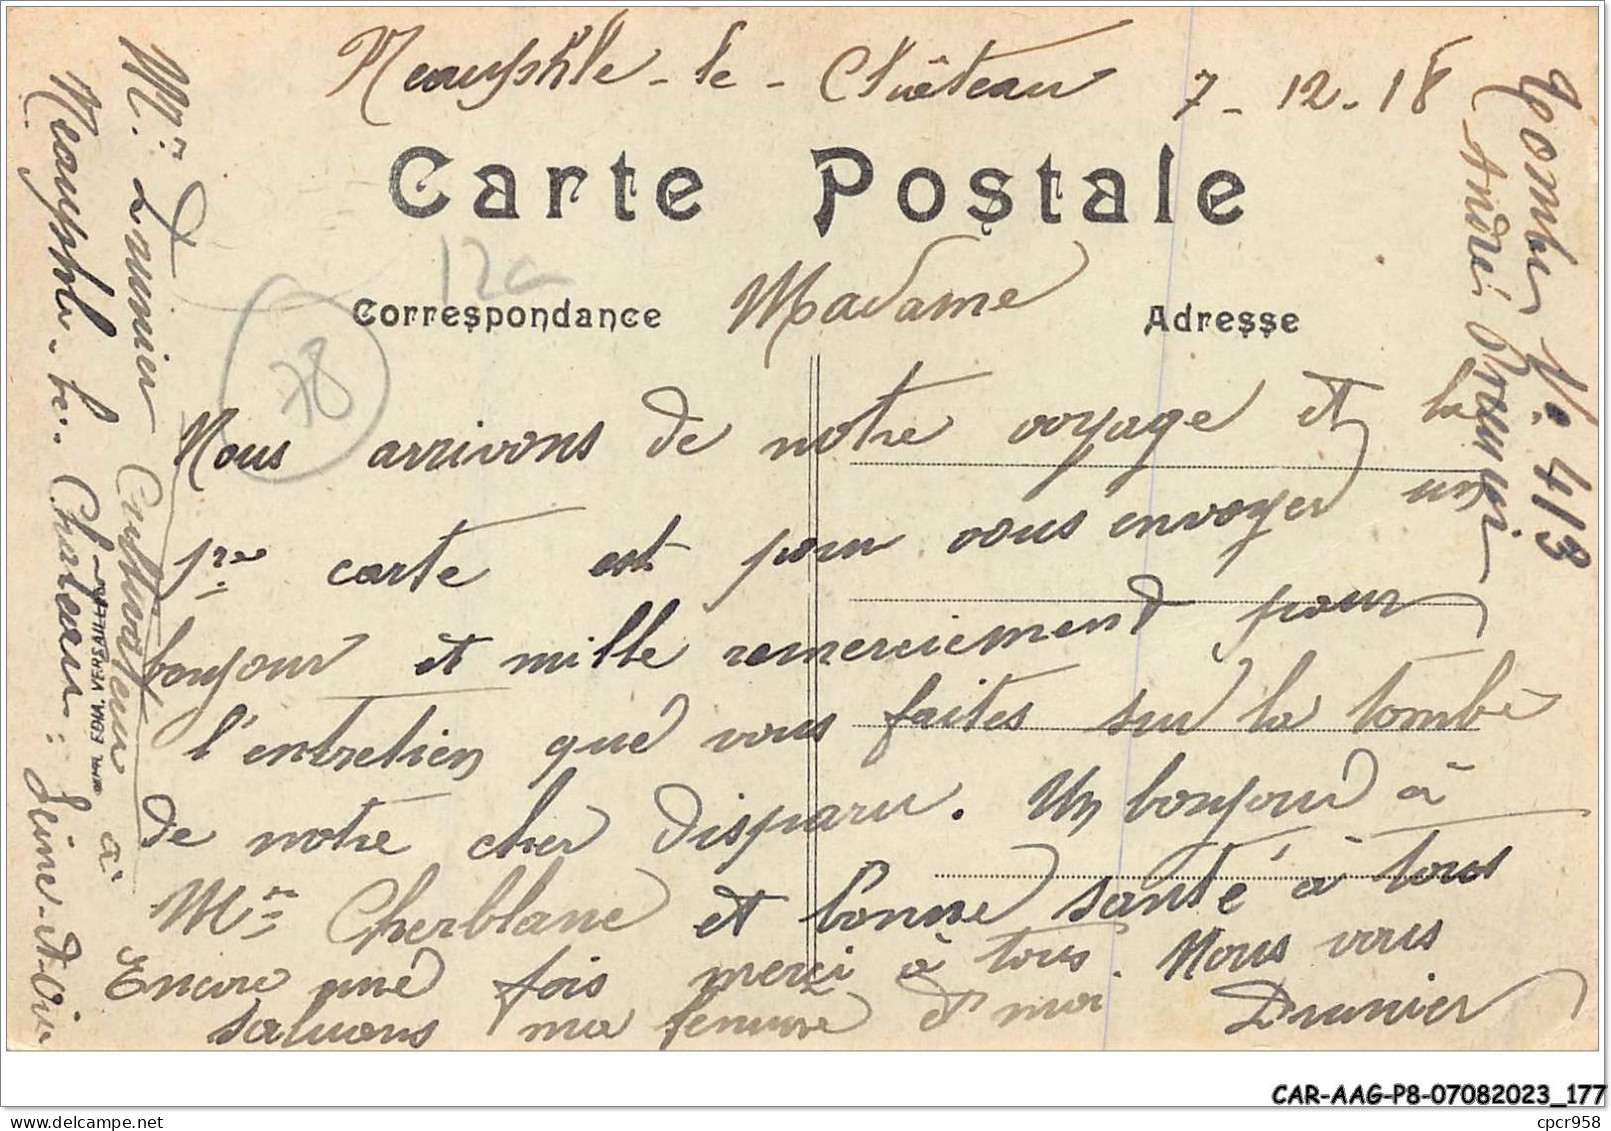 Neauphle-le-Château 7-12-18
Carte Postale
12a
Correspondance Madame Adresse
78
Nous arrivons de notre voyage et la
1re carte est pour vous envoyer un
bonjour et mille remerciement pour
l'entretien que vous faites sur la tombe
de notre cher disparu. Un bonjour à
Mme Cherblanc et bonne santé à tous
Encore une fois merci à tous. Nous vous
saluons ma femme et moi Daunier
Mr Daunier Cultivateur à
Neauphle-le-Château: Seine-et-Oise
Tombe No 413
André
EDIA, VERSAILLES
CAR-AAG-P8-07082023_177
cpcr958